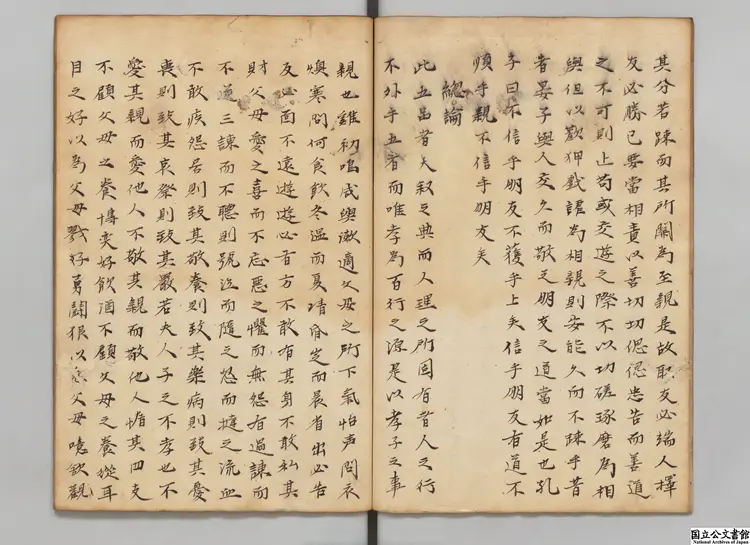 其分若踈而其所關為至親是故取友必端人擇
友必勝已要當相責以善切切偲偲忠告而善道
之不可則止苟或交遊之際不以切磋琢磨為相
與但以歡狎戲謔為相親則安能久而不踈乎昔
者晏子與人交久而敬之朋友之道當如是也孔
子曰不信乎朋友不獲乎上矣信乎朋友有道不
順乎親不信乎朋友矣
總論
此五品者天叙之典而人理之所固有者人之行
不外乎五者而唯孝為百行之源是以孝子之事
親也雞初鳴咸盥漱適父母之所下氣怡声問衣
燠寒問何食飲冬溫而夏凊昏定而晨省出必告
反必面不遠遊遊必有方不敢有其身不敢私其
財父母愛之喜而不忘惡之懼而無怨有過諫而
不逆三諫而不聽則號泣而隨之怒而撻之流血
不敢疾怨居則致其敬養則致其樂病則致其憂
喪則致其哀祭則致其嚴若夫人子之不孝也不
愛其親而愛他人不敬其親而敬他人惰其四支
不顧父母之養博奕好飮酒不顧父母之養從耳
目之好以為父母戮好勇鬪狠以危父母噫欲觀
国立公文書館
National Archives of Japan